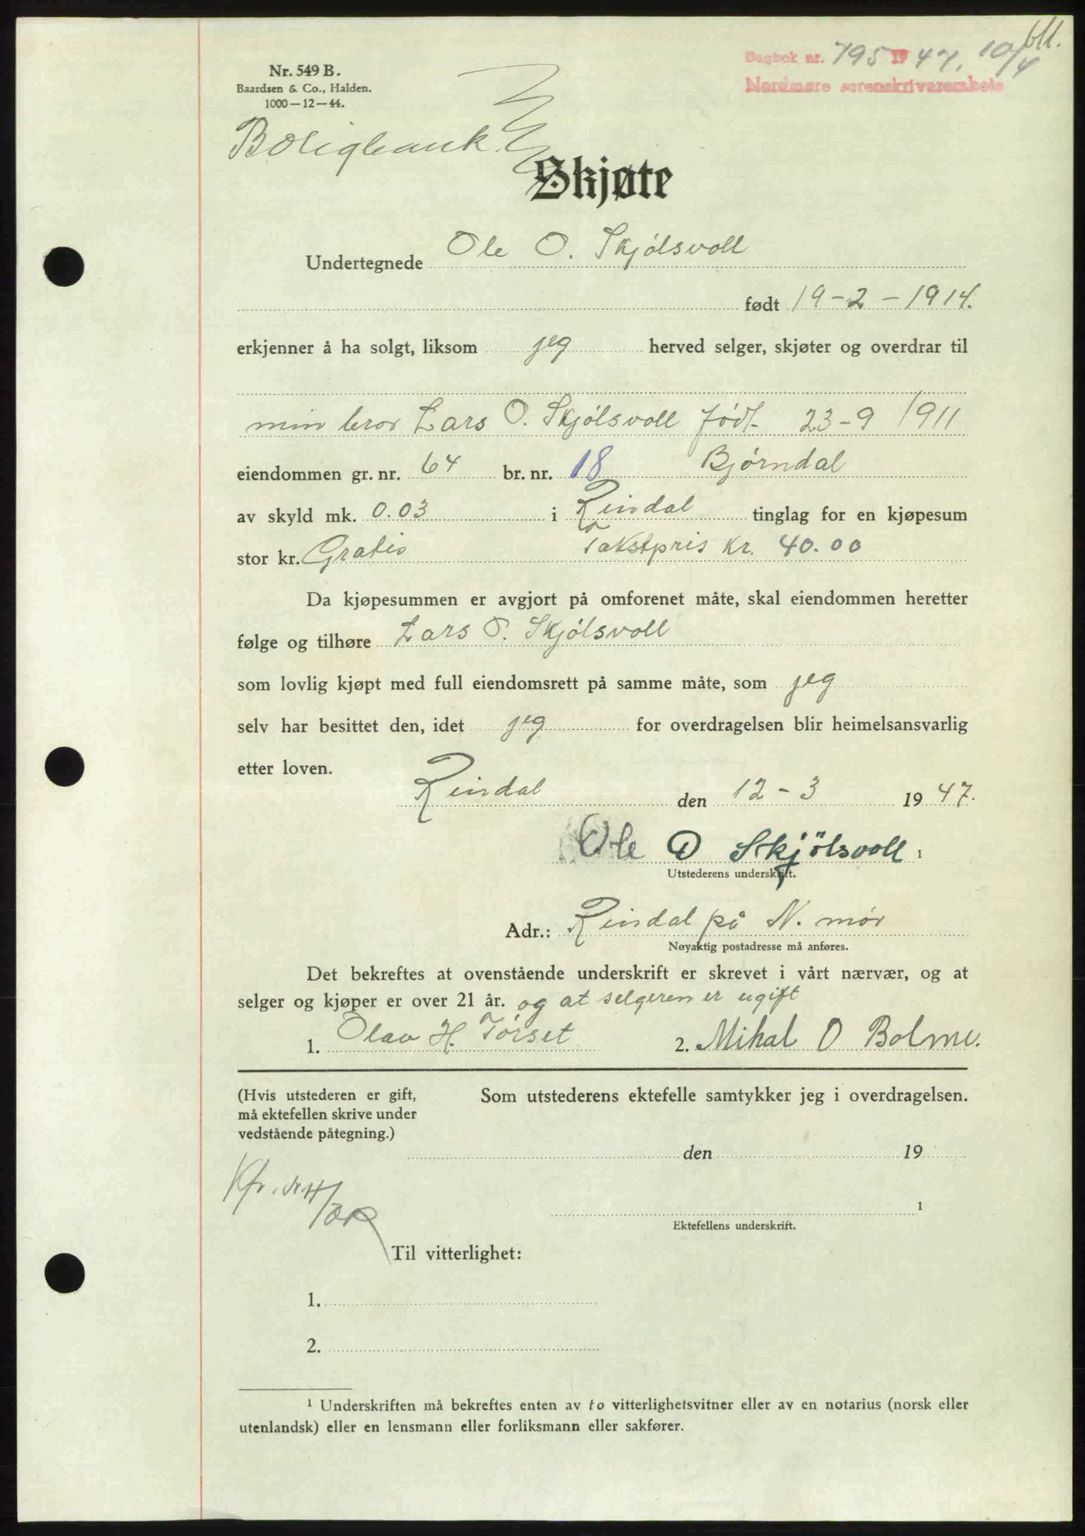 Nr. 549 B.
Baardsen & Co., Halden.
1000—12—44.
Dagbok nr. 795 1947. 10/4
Nordmøre sorenskriverembete
Boligbank
Skjøte
Undertegnede Ole O. Skjölsvoll
født 19-2-1914.
erkjenner å ha solgt, liksom jeg herved selger, skjøter og overdrar til
min bror Lars O. Skjölsvoll født 23-9 1911
eiendommen gr. nr. 64 br. nr. 18 Bjørndal
av skyld mk. 0.03 i Rindal tinglag for en kjøpesum
stor kr. Gratis Takstpris kr. 40.00
Da kjøpesummen er avgjort på omforenet måte, skal eiendommen heretter
følge og tilhøre Lars O. Skjölsvoll
som lovlig kjøpt med full eiendomsrett på samme måte, som jeg
selv har besittet den, idet jeg for overdragelsen blir heimelsansvarlig
etter loven.
Rindal den 12-3 1947.
Ole O Skjölsvoll 1
Utstederens underskrift.
Adr.: Rindal på N. mør
Nøyaktig postadresse må anføres.
Det bekreftes at ovenstående underskrift er skrevet i vårt nærvær, og at
selger og kjøper er over 21 år. og at selgeren er ugift
1. Olav H. Tørset 2. Mikal O Bolme.
(Hvis utstederen er gift,
må ektefellen skrive under
vedstående påtegning.)
Som utstederens ektefelle samtykker jeg i overdragelsen.
den 19
1
Ektefellens underskrift.
Til vitterlighet:
1.
2.
1 Underskriften må bekreftes enten av to vitterlighetsvitner eller av en notarius (norsk eller
utenlandsk) eller en lensmann eller forliksmann eller sakfører.